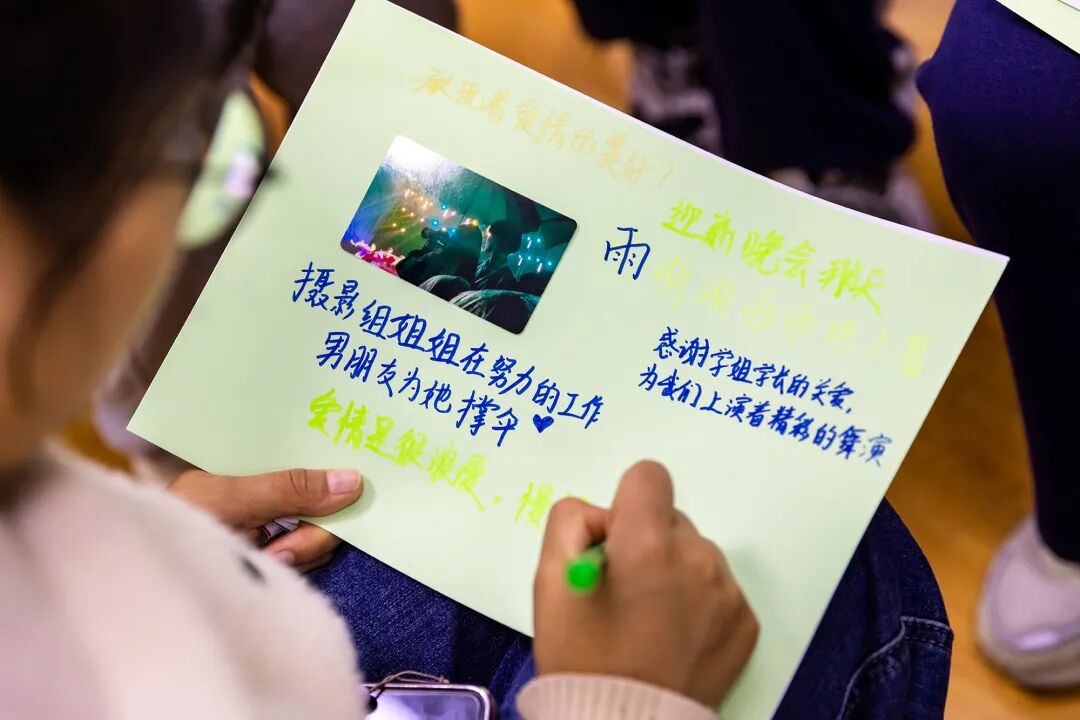 爱情的美好！
摄影组姐姐在努力的工作
男朋友为她撑伞♥
爱情是很浪漫，
迎新晚会那天
雨
感谢学姐学长的关爱，
为我们上演着精彩的舞演